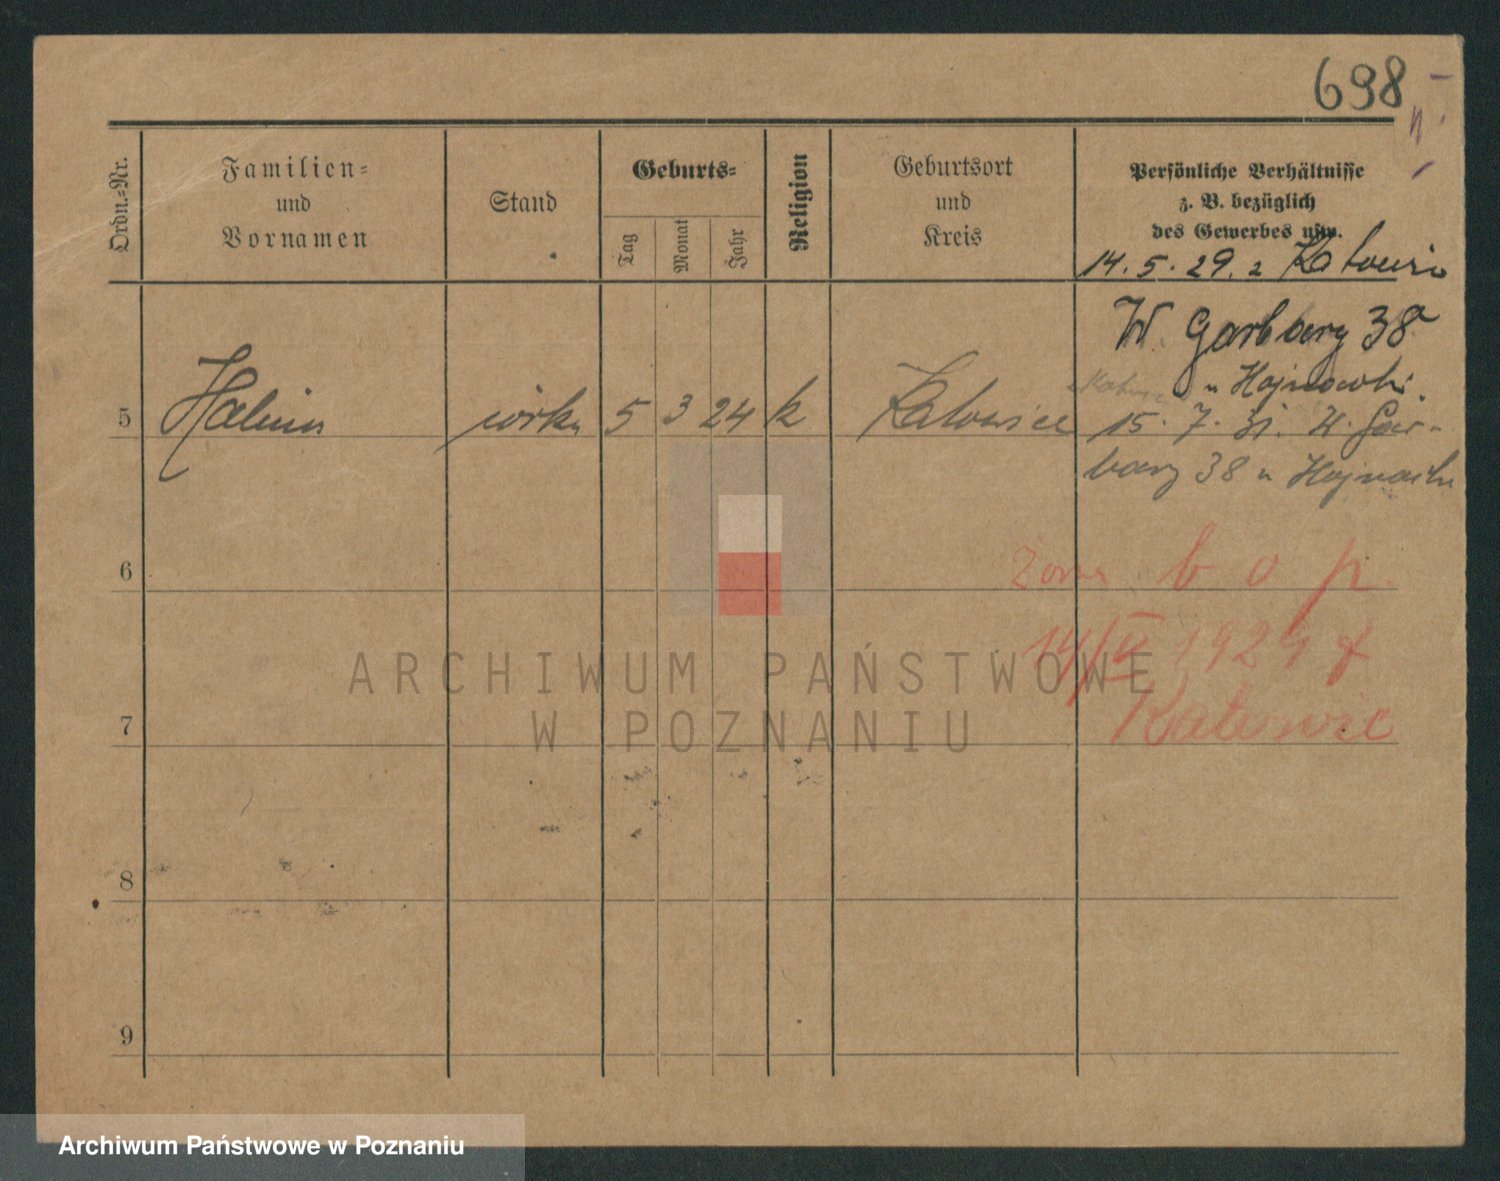 698
Ordn.=Nr.
Familien=
und
Vornamen
Stand
Geburts=
Tag
Monat
Jahr
Religion
Geburtsort
und
Kreis
Persönliche Verhältnisse
z. B. bezüglich
des Gewerbes usw.
14. 5. 29. z
W. Garbary 38
u
5 córka 5 3 24 k Katowice
15. 7. 31. W. Gar-
bary 38 u
6
żona b o p.
14/V 1929 z
Katowic
7
8
9
ARCHIWUM PAŃSTWOWE
W POZNANIU
Archiwum Państwowe w Poznaniu